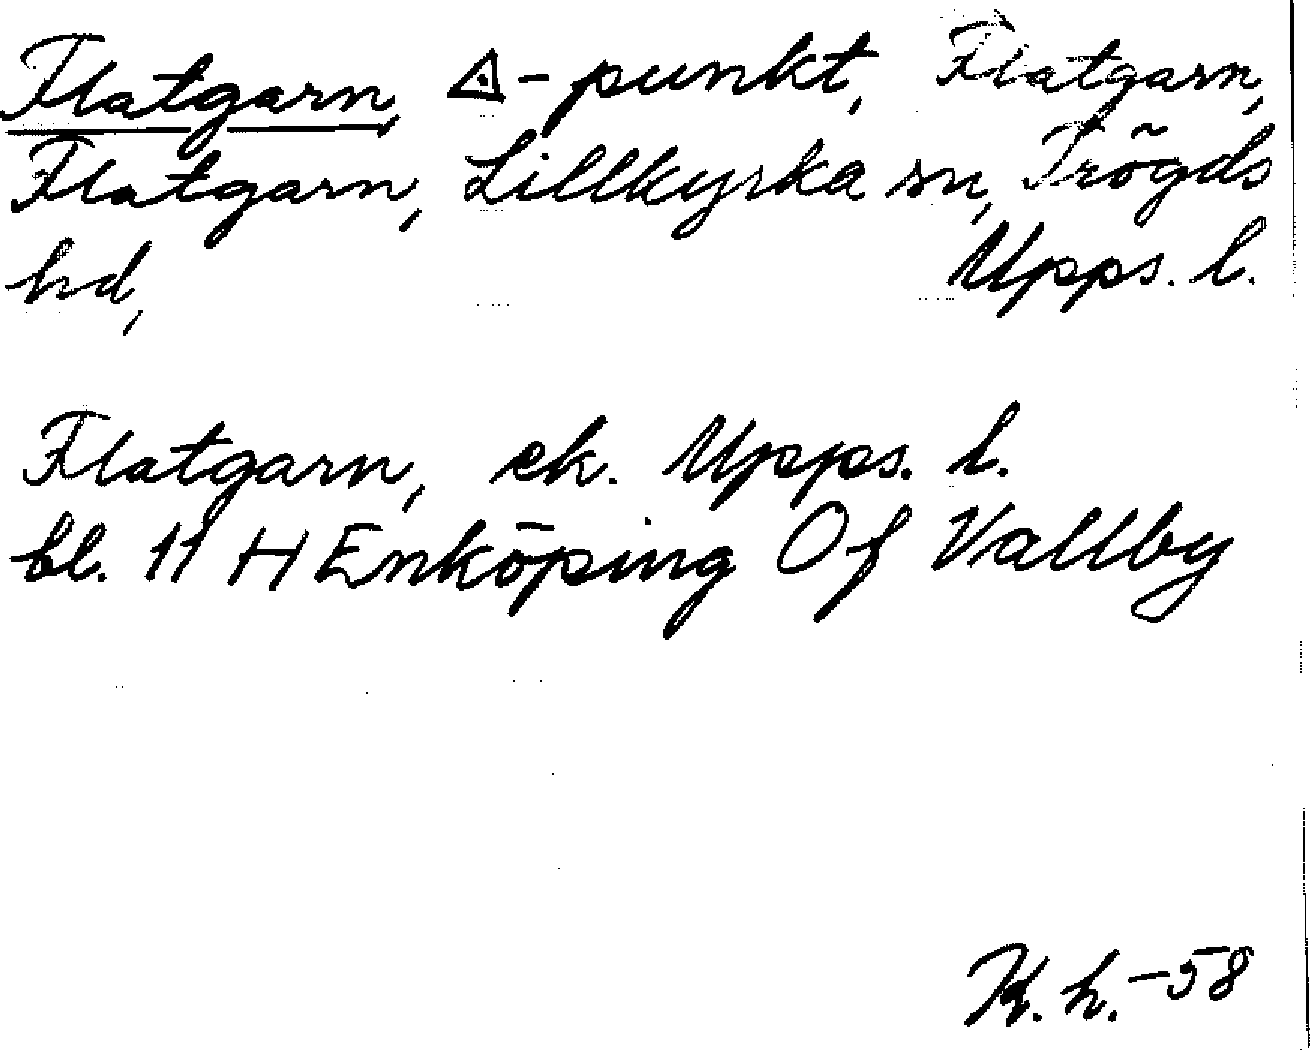 Flatgarn, △-punkt, Flatgarn,
Flatgarn, Lillkyrka sn, Trögds
hd, Upps. l.
Flatgarn, ek. Upps. l.
bl. 11 H Enköping Of Vallby
K. h. -58